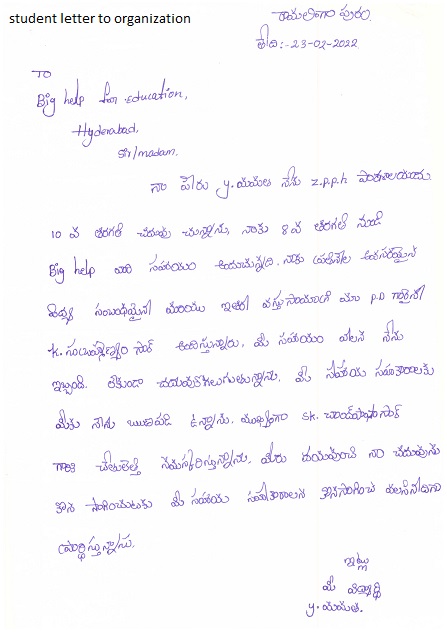 student letter to organization
రామలింగా పురం.
తేది:-23-02-2022
TO
Big help for education,
Hyderabad,
Sir/madam.
నా పేరు y.మమత నేను z.p.p.h పాఠశాలయందు
10 వ తరగతి చదువు చున్నాను. నాకు 8 వ తరగతి నుండి
Big help వారి సహాయం అందుచున్నది. నాకు ప్రతినెల అవసరమైన
విద్యా సంబంధమైన మరియు ఇతర వస్తు సామాగ్రి మా P.D గారైన
K.సుబ్రహ్మణ్యం సార్ అందిస్తున్నారు. మీ సహాయం వలన నేను
ఇబ్బంది లేకుండా చదువుకోగలుగుతున్నాను. మీ సహాయ సహకారాలకు
మీకు నేను ఋణపడి ఉన్నాను. ముఖ్యంగా SK. చాంద్‌పాషా సార్
గారికి చేతులెత్తి నమస్కరిస్తున్నాను. మీరు దయవుంచి నా చదువును
కొన సాగించుటకు మీ సహాయ సహకారాలను కొనసాగించ వలసినదిగా
ప్రార్థిస్తున్నాను.
ఇట్లు
మీ విద్యార్థి
y.మమత.